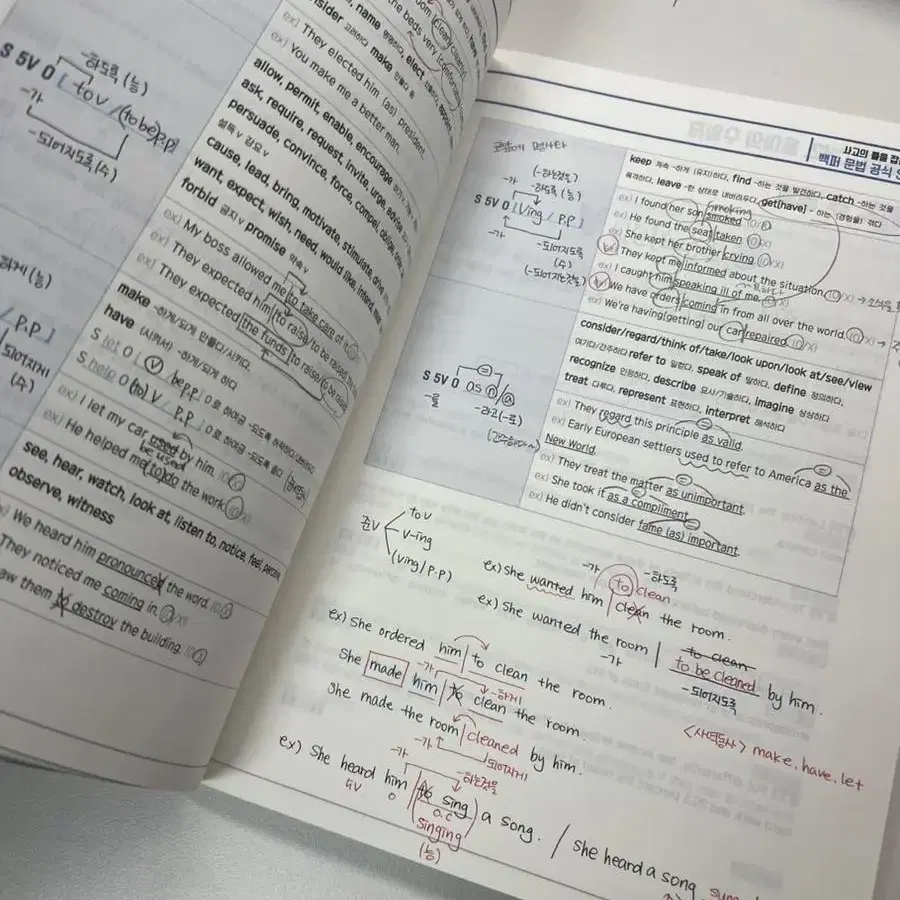 -하도록 (능)
S 5V O [to V / (to be) p.p]
-가
-되어지도록 (수)
하게 (능)
/ P.P ]
되어지게
(수)
the beds very (comfortably
name 명명하다, elect
nsider 고려하다 make
ex) They elected him (as) president
ex) You make me a better man.
allow, permit, enable, encourage
ask, require, request, invite, urge, advise
persuade, convince, force, compel, oblige
설득v 강요v
cause, lead, bring, motivate, stimulate, drive
want, expect, wish, need, would like, intend
forbid 금지v promise 약속v
ex) My boss allowed me to take care of it.
ex) They expected him to raise/to be raised
ex) They expected the funds to raise/to be raised
make -하게/되게 만들다/시키다.
have (시켜서) -하게/되게 하다
S let O V / be p.p / O로 하여금 -되도록 허락하다/내버려두다
S help O (to) V / P.P / O로 하여금 -되도록 돕다
ex) I let my car used by him. (O/X)
be used
ex) He helped me (to) do the work. (O/X)
see, hear, watch, look at, listen to, notice, feel, perceive
observe, witness
We heard him pronounced the word. (O/X)
They noticed me coming in. (O/X)
aw them to destroy the building. (O/X)
사고의 틀을 잡
백퍼 문법 공식
-가
(-하는것을)
-하도록 (능)
S 5V O [Ving / P.P]
-가
-되어지도록
(수)
(-되어지는것을)
keep 계속 -하게 (유지)하다, find -하는 것을 발견하다, catch -하는 것을
목격하다, leave -한 상태로 내버려두다, get[have] - 하는 (경험을) 하다
smoking
ex) I found her son smoked (O/X)
ex) He found the seat taken (O/X)
ex) She kept her brother crying (O/X)
ex) They kept me informed about the situation. (O/X)
ex) I caught him speaking ill of me. (O/X)
ex) We have orders coming in from all over the world (O/X)
ex) We're having[getting] our car repaired (O/X)
S 5V O as n/a
-를
-라고 (-로)
consider/regard/think of/take/look upon/look at/see/view
여기다/간주하다 refer to 일컫다, speak of 말하다, define 정의하다,
recognize 인정하다, describe 묘사/기술하다, imagine 상상하다
treat 다루다, represent 표현하다, interpret 해석하다
ex) They regard this principle as valid.
ex) Early European settlers used to refer to America as the
New World.
ex) They treat the matter as unimportant.
ex) She took it as a compliment.
ex) He didn't consider fame (as) important.
준V
to V
V-ing
(ving/p.p)
-가
-하도록
ex) She wanted him | to clean.
clean the room.
ex) She wanted the room | to clean
-가
to be cleaned by him.
-되어지도록
ex) She ordered him | to clean the room.
-가
-하게
She made him | to clean the room.
She made the room | cleaned by him.
-가
되어지게
<사역동사> make, have, let
ex) She heard him | to sing a song. / She heard a song
-가
-하는것을
5V
O
O.C
singing
(능)